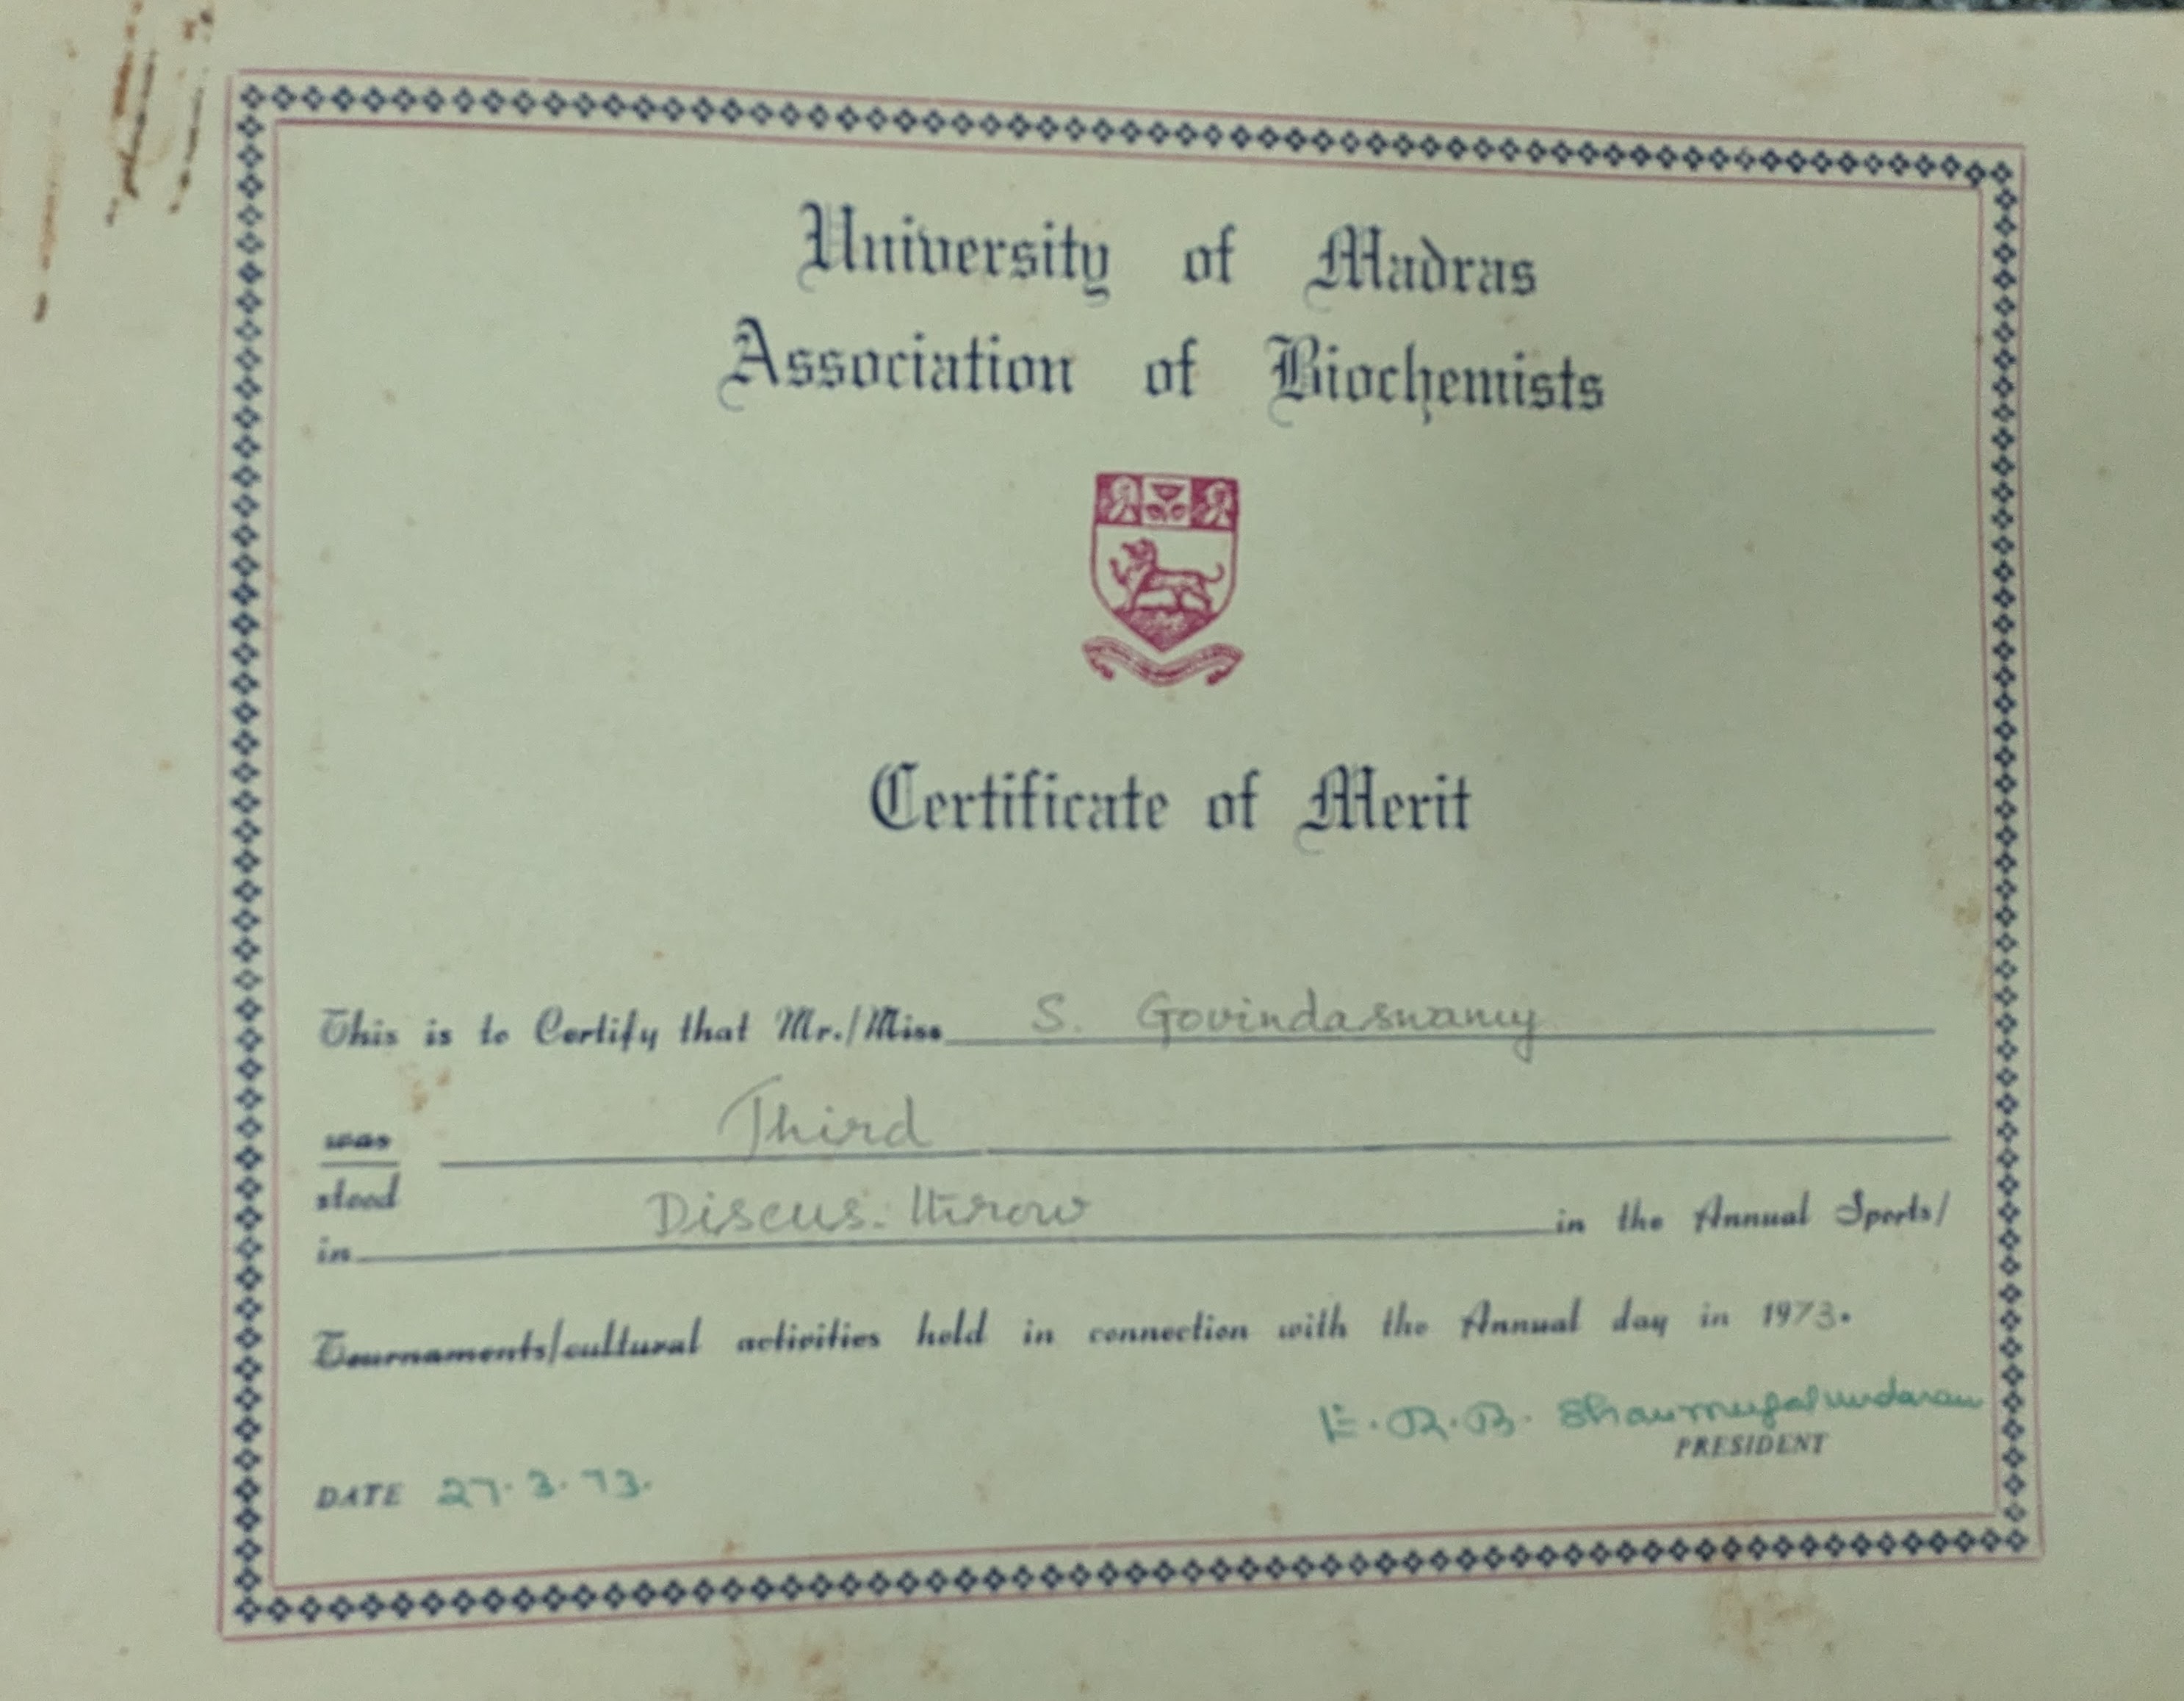 University of Madras
Association of Biochemists
Certificate of Merit
This is to Certify that Mr./Miss S. Govindaswamy
was Third
stood
in Discus throw in the Annual Sports/
Tournaments/cultural activities held in connection with the Annual day in 1973.
E. R. B. Shanmugasundaram
PRESIDENT
DATE 27.3.73.